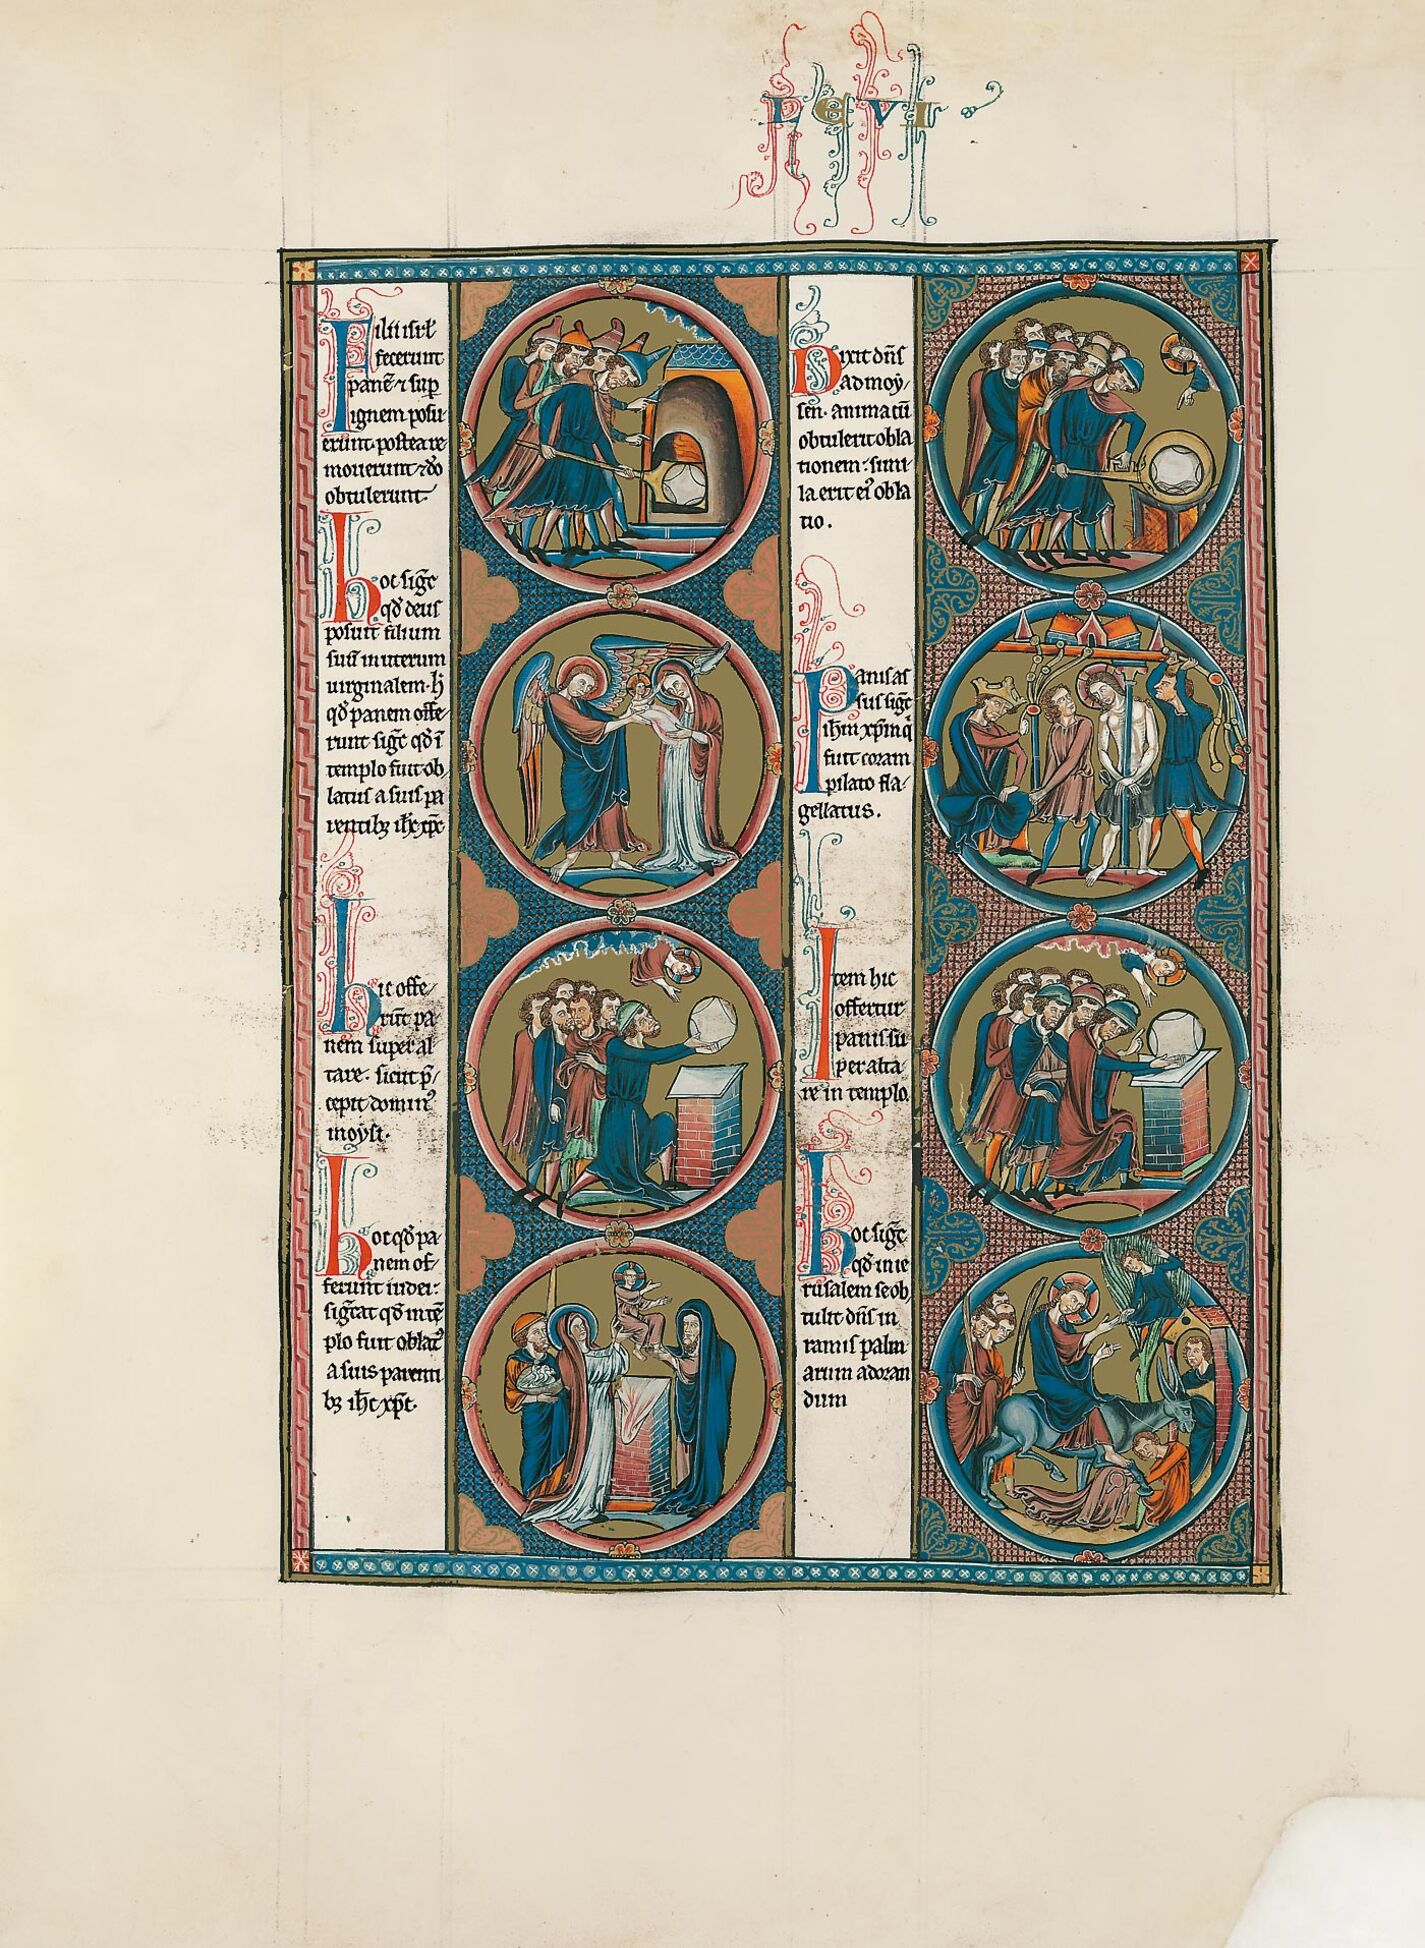 LEVI
Filii isrl̄
fecerunt
panē ⁊ sup̄
ignem posu
erunt. postea re
mouerunt ⁊ dō
obtulerunt.
Hoc sigᷓt
qđ deus
posuit filium
suū in uterum
uirginalem. h̵
qđ panem offe
runt sigᷓt qđ ī
templo fuit ob
latus a suis pa
rentibꝫ ih̄c xp̄c
Hic offe-
rūt pa
nem super al
tare. sicut p̄-
cepit dominꝰ
moẏsi.
Hoc qđ pa-
nem of-
ferunt iudei:
sigᷓcat qđ in tē
plo fuit oblatꝰ
a suis parenti
bꝫ ih̄c xp̄c.
Dixit dn̄s
ad moẏ-
sen. anima cū
obtulerit obla
tionem: simi
la erit eiꝰ obla
tio.
Panis as
sus sigᷓt
ih̄m xp̄m q̇
fuit coram
pilato fla-
gellatus.
Item hic
offertur
panis su
per alta-
re in templo.
Hoc sigᷓt
qđ in ie
rusalem se ob
tulit dn̄s in
ramis palm
arum adoran
dum